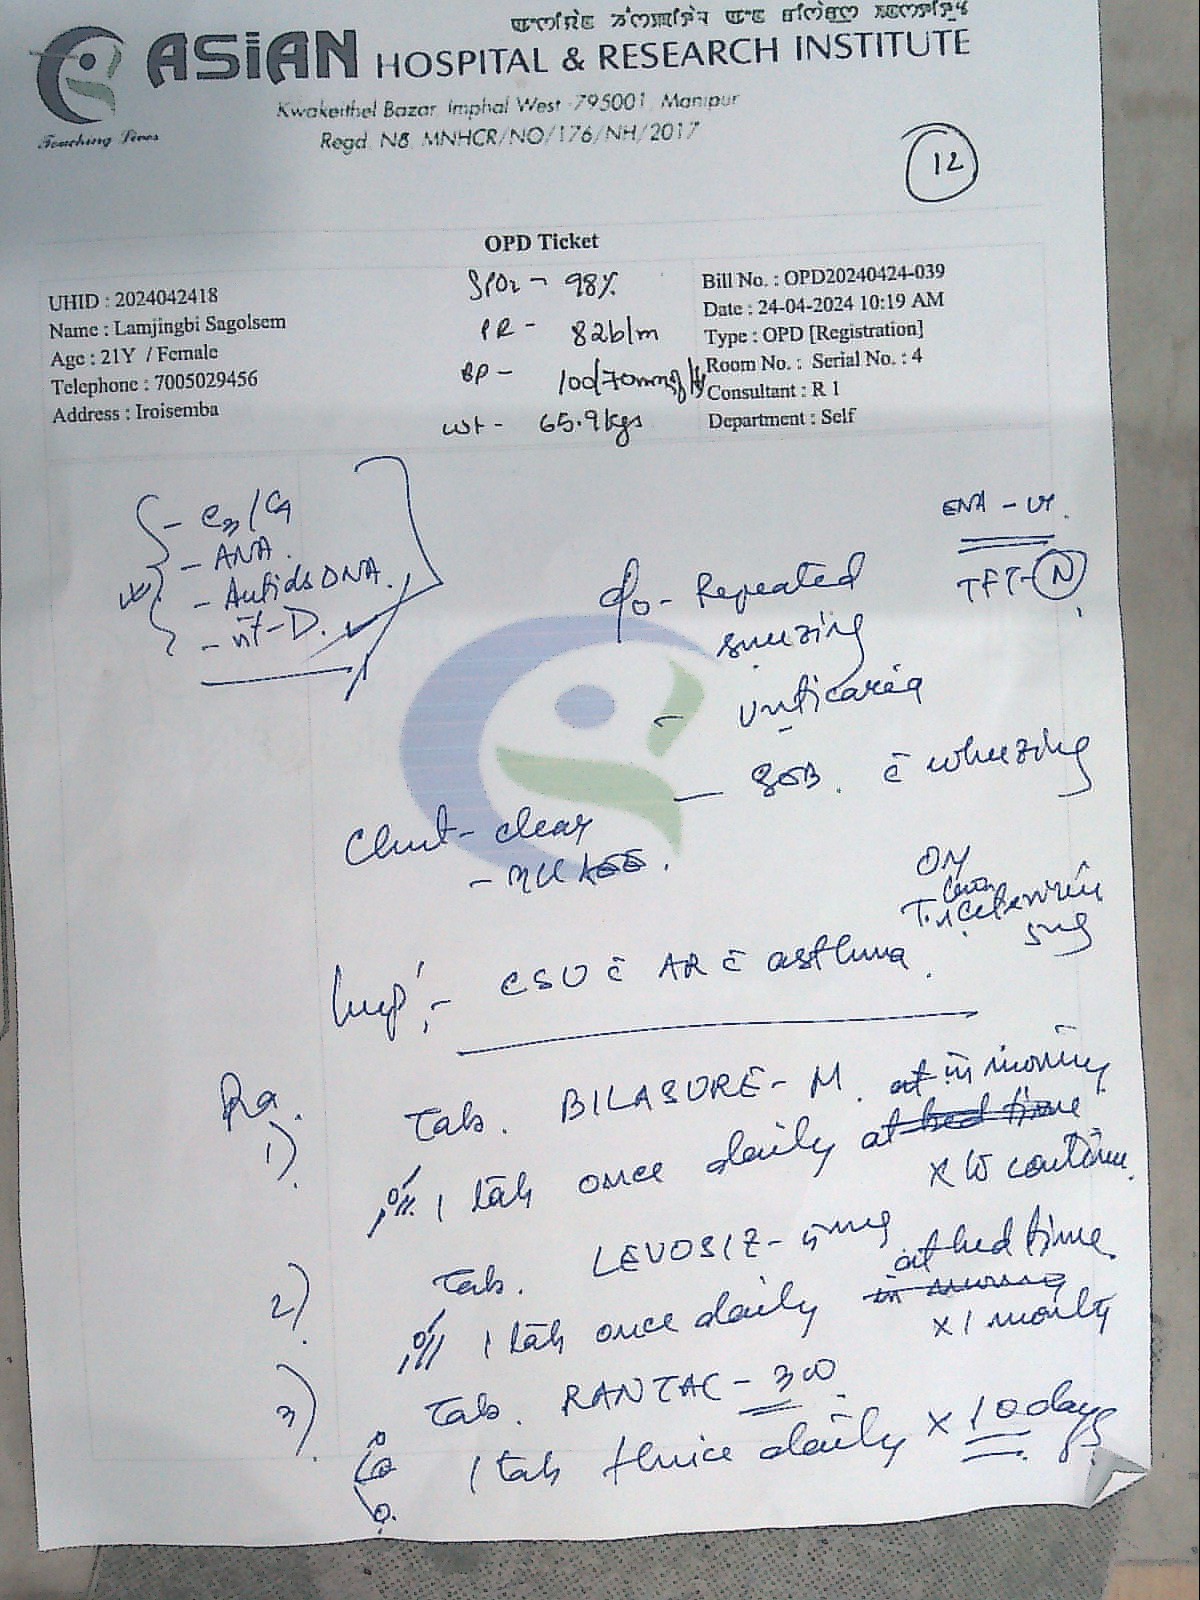 ASiAN HOSPITAL & RESEARCH INSTITUTE
Kwakeithel Bazar, Imphal West -795001, Manipur
Touching Lives
Regd. No. MNHCR/NO/176/NH/2017
12
OPD Ticket
UHID : 2024042418
Name : Lamjingbi Sagolsem
Age : 21Y / Female
Telephone : 7005029456
Address : Iroisemba
SPO2 - 98%
PR - 82b/m
BP - 100/70mmg
wt - 65.9kgs
Bill No. : OPD20240424-039
Date : 24-04-2024 10:19 AM
Type : OPD [Registration]
Room No. : Serial No. : 4
Consultant : R 1
Department : Self
- C3/C4
- ANA.
- AntidsDNA.
- vit-D.
ENA -
TFT- N
c/o - Repeated
sneezing
- urticaria
- SOB. c̄ wheezing
Chest - clear
ON
5mg
Imp:- CSU c̄ AR c̄ asthma.
Rx.
1) Tab. BILASURE - M. in morning
1 tab once daily at bed time
x to continue.
2) Tab. LEVOSIZ - 5mg
1 tab once daily at bed time
in morning
x 1 month
3) Tab. RANTAC - 300
1 tab thrice daily x 10 days